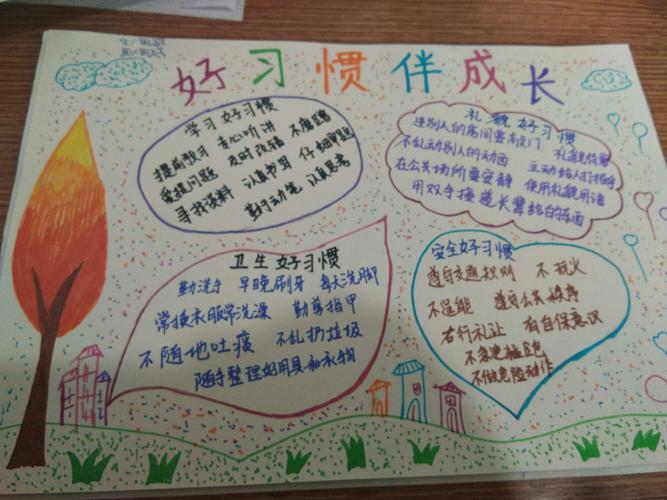 好习惯伴成长
学习好习惯
提前预习 专心听讲 不磨蹭
爱提问题 及时改错 仔细审题
寻找资料 认真书写
勤动笔 认真思考
礼貌好习惯
进别人的房间要敲门 礼貌待客
不乱动别人的东西 主动给人打招呼
在公共场所要安静 使用礼貌用语
用双手接递长辈给的东西
卫生好习惯
勤洗手 早晚刷牙 每天洗脚
常换衣服常洗澡 勤剪指甲
不随地吐痰 不乱扔垃圾
随手整理好用具和衣物
安全好习惯
遵守交通规则 不玩火
不逞能 遵守公共秩序
右行礼让 有自保意识
不急速猛跑
不做危险动作